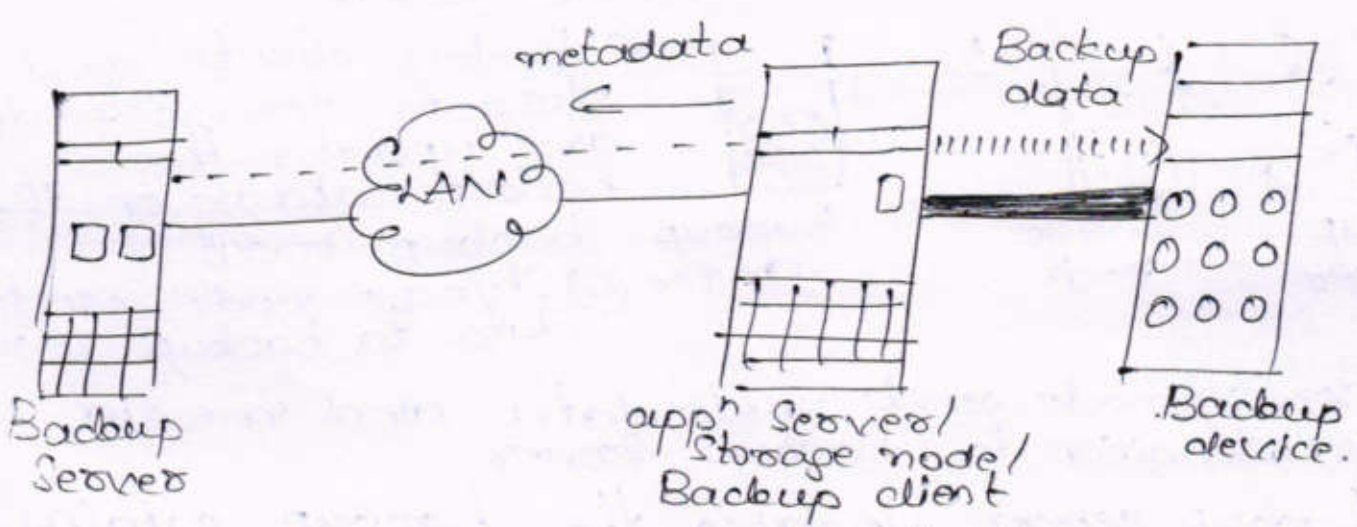 metadata
Backup
data
LAN
Backup
Server
appⁿ Server/
Storage node/
Backup client
Backup
device.